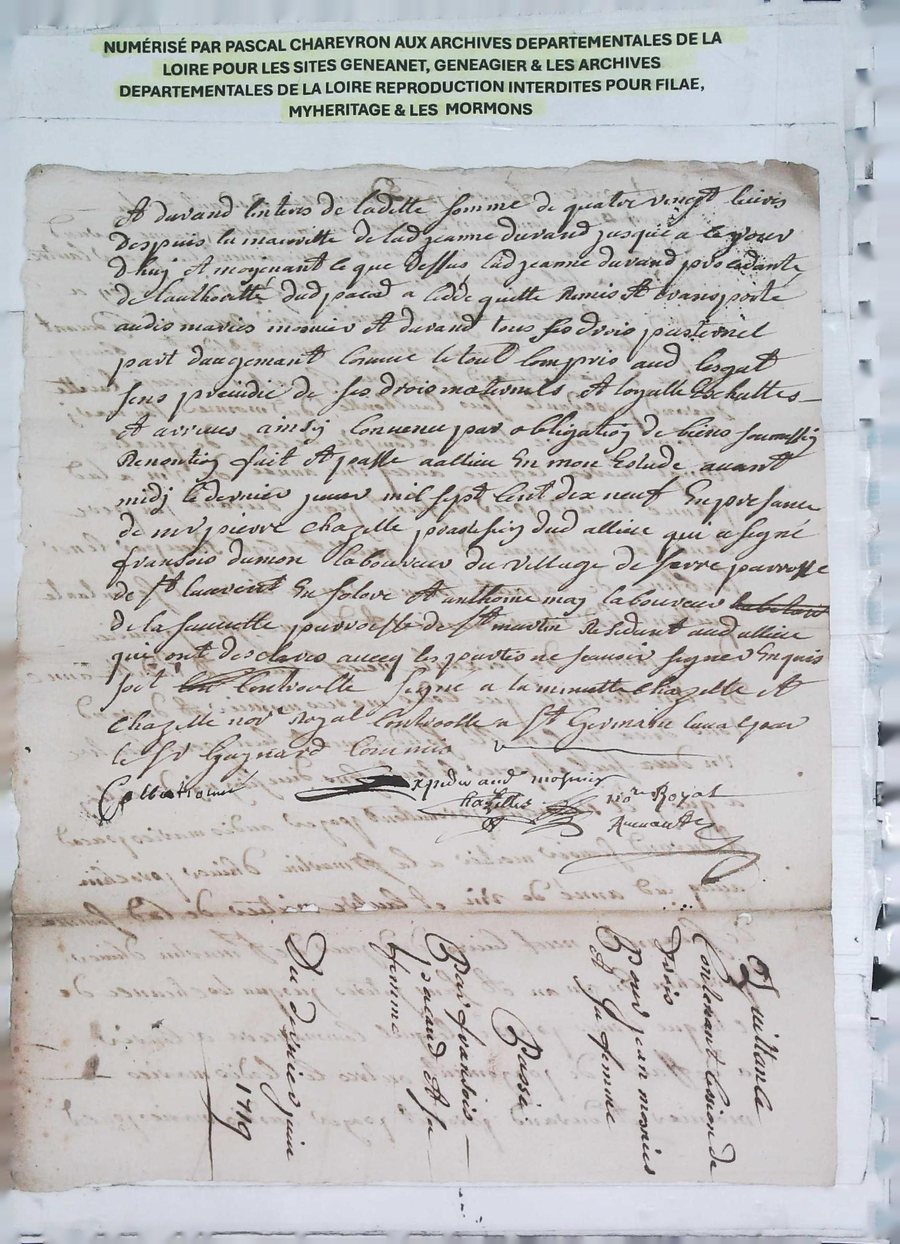 NUMÉRISÉ PAR PASCAL CHAREYRON AUX ARCHIVES DEPARTEMENTALES DE LA
LOIRE POUR LES SITES GENEANET, GENEAGIER & LES ARCHIVES
DEPARTEMENTALES DE LA LOIRE REPRODUCTION INTERDITES POUR FILAE,
MYHERITAGE & LES MORMONS
Et durand linteres de ladette somme de quatre vingt livres
despuis la de lad jeanne durand jusque a le jour
dhuj Et moyenant ce que dessus lad jeanne durand procedante
de lauthoritté dud pacad a cédé quitte Remis Et transporté
ausdis maries mosnier Et durand tous ses drois paternel
part daugemant Comme le tout Compris aud
sens prejudice de ses drois maternels Et loyalle Eschuttes
ainsy Convenu par obligation de biens soumission
Renontion fait Et passé a allieu En mon Estude avant
midj le dernier juin mil sept Cent dix neuf En presance
de mr pierre Chazelle praticien dud allieu qui a signé
fransois dumon laboureur du village de Serre parroisse
de St laurent En solore Et anthoine may laboureur
de la parroisse de St martin Residant aud allieu
qui ont desclarés avecq les partis ne scavoir signer Enquis
soit Controolle signé a la minutte Chazelle Et
Chazelle nore Royal Controollé a St Germain laval par
le Sr Guynard Commis
Expedié aud mosnier
Chazelles nore Royal
Et
Quittance
Contenant Cession de
Drois
Pour jean mosnier
Et Sa femme
Passé
Par fransois
pacaud Et sa
femme
Du dernier juin
1719